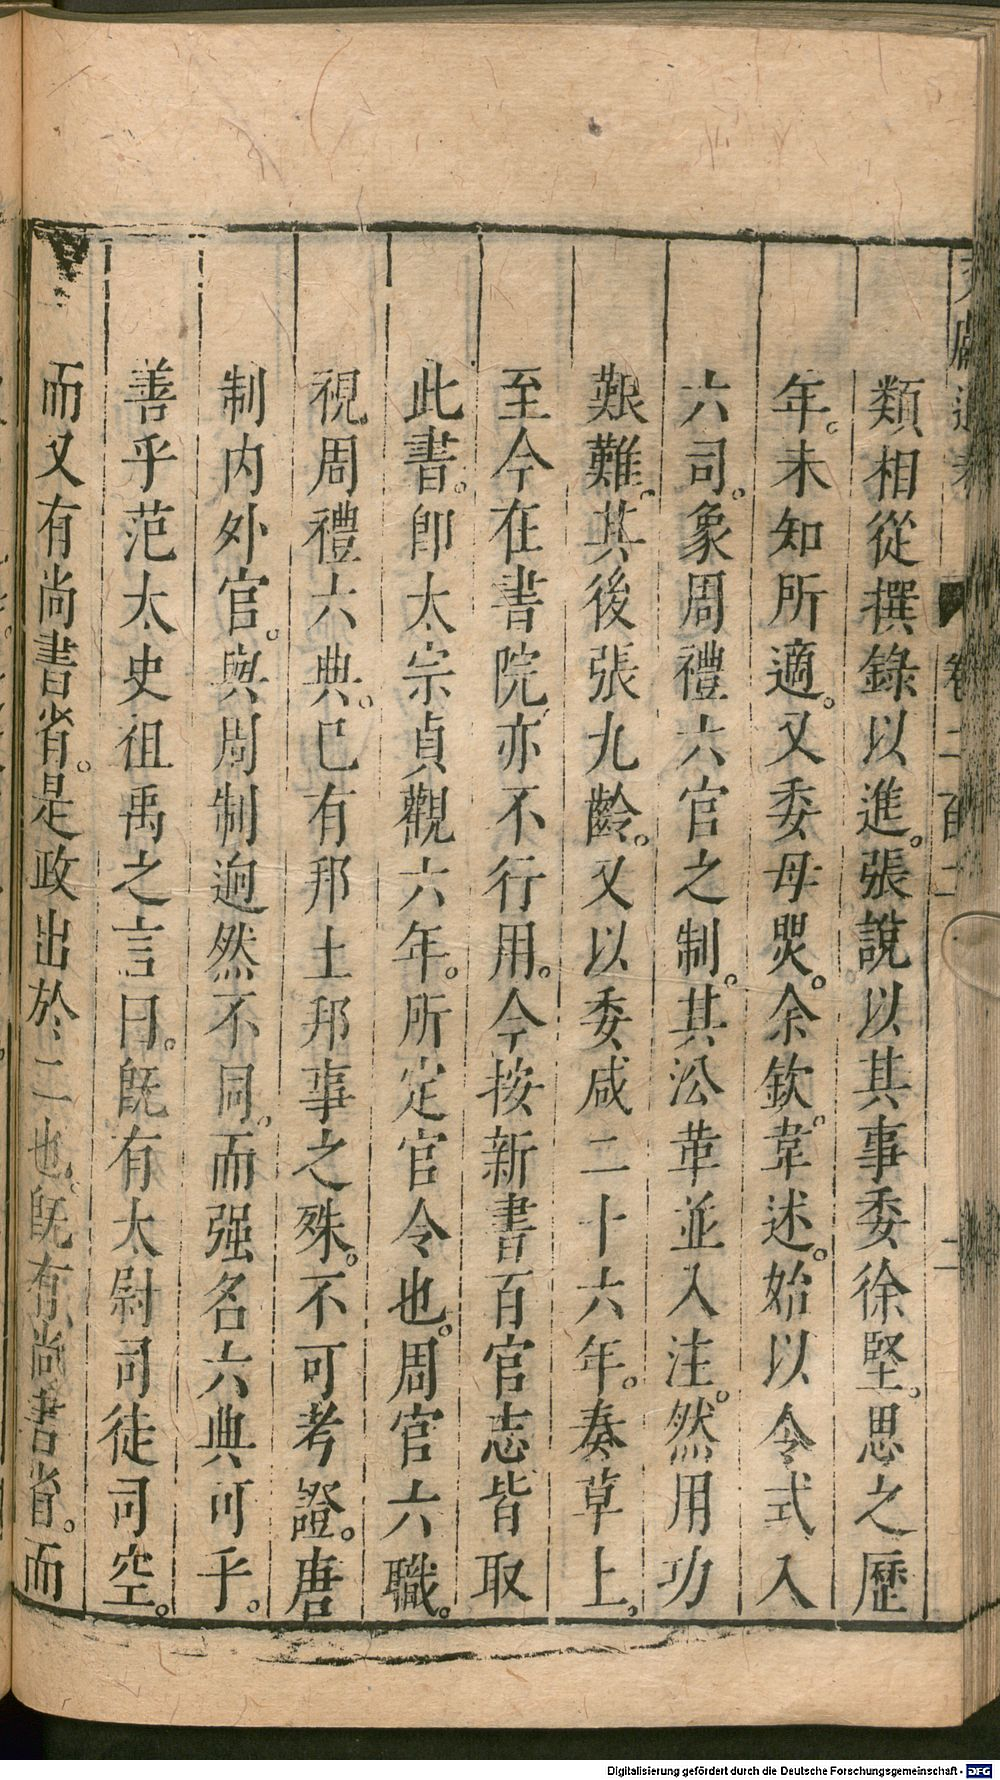 卷二百二
二
類相從撰錄以進。張說以其事委徐堅。思之歷
年。未知所適。又委毋煚。余欽。韋述。始以令式入
六司。象周禮六官之制。其沿革並入注。然用功
艱難。其後張九齡。又以委咸二十六年。奏草上。
至今在書院。亦不行用。今按新書百官志皆取
此書。卽太宗貞觀六年。所定官令也。周官六職。
視周禮六典。已有邦土邦事之殊。不可考證。唐
制內外官。與周制逈然不同。而强名六典可乎。
善乎范太史祖禹之言曰。旣有太尉司徒司空。
而又有尚書省。是政出於二也。旣有尚書省。而
Digitalisierung gefördert durch die Deutsche Forschungsgemeinschaft - DFG